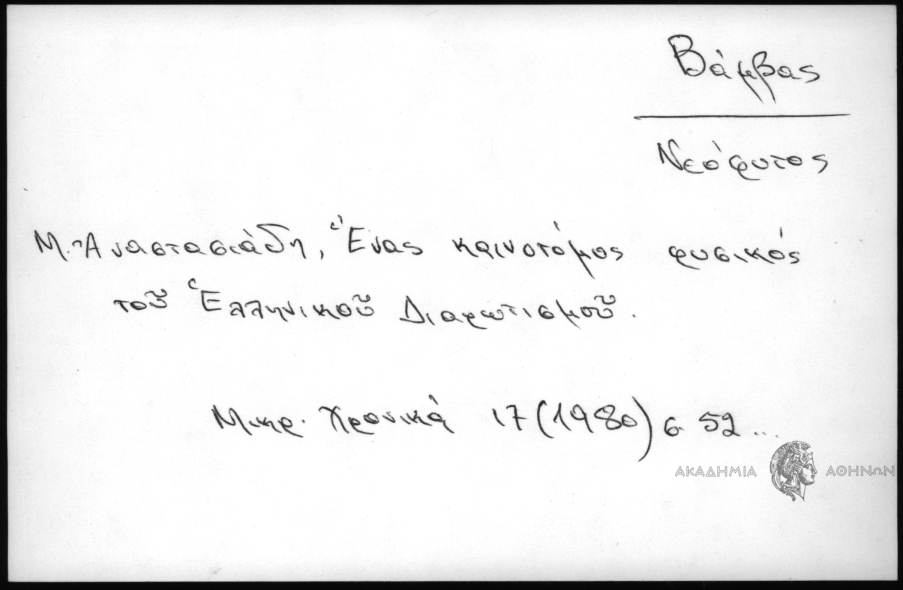 Βάμβας
Νεόφυτος
Μ. Ἀναστασιάδη, Ἕνας καινοτόμος φυσικός
τοῦ Ἑλληνικοῦ Διαφωτισμοῦ.
Μικρ. Χρονικά 17 (1980) σ 52 ...
ΑΚΑΔΗΜΙΑ ΑΘΗΝΩΝ